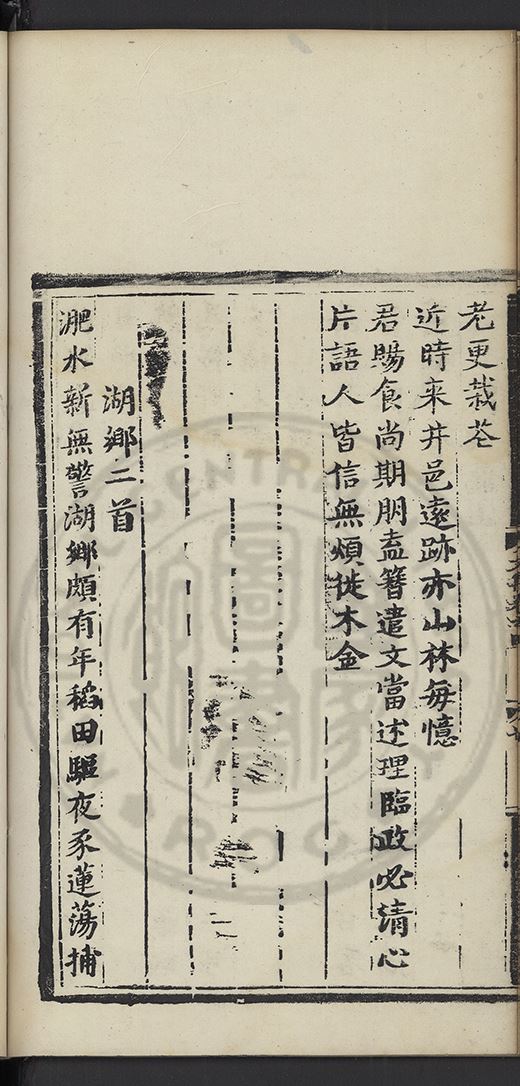 老更栽花
近時來井邑遠跡亦山林每憶
君賜食尚期朋盍簪遣文當述理臨政必清心
片語人皆信無煩徙木金
湖鄉二首
淝水新無警湖鄉頗有年稻田驅夜豕蓮蕩捕